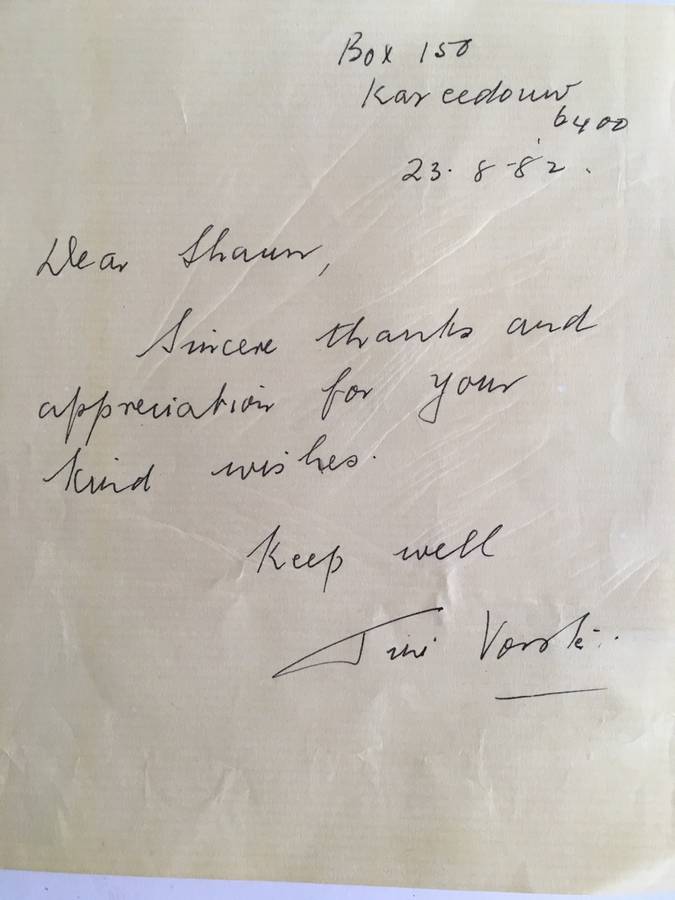 Box 150
Kareedouw
6400
23.8-82.
Dear Shaun,
Sincere thanks and
appreciation for your
kind wishes.
Keep well
Tini Vorster.